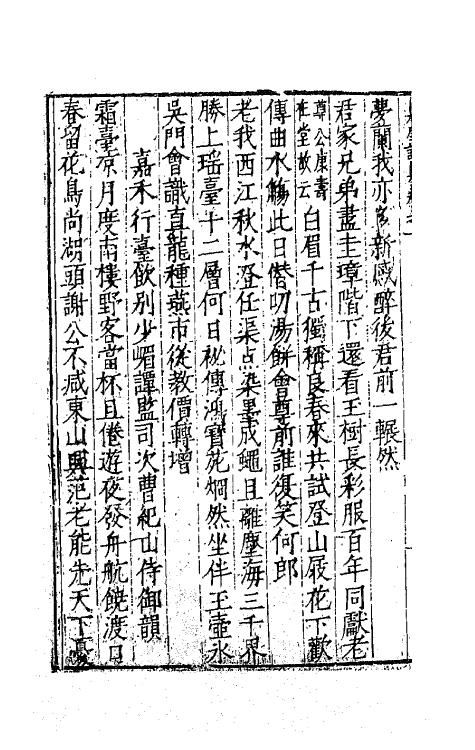 夢闌我亦多新感醉後君前一輾然
君家兄弟盡圭璋階下還看玉樹長彩服百年同獻老
尊公康壽在堂故云白眉千古獨稱良春來共試登山屐花下歡
傳曲水觴此日僣叨湯餅會尊前誰復笑何郎
老我西江秋水澄任渠点染墨成蠅且離塵海三千界
勝上瑶臺十二層何日袐傳鴻寳苑烱然坐伴玉壺氷
吳門會識真龍種燕市從教價轉增
嘉禾行臺飲别少嵋譚監司次曹紀山侍御韻
霜臺凉月度南樓野客當杯且倦遊夜發舟航饒渡口
春留花鳥尚湖頭謝公不減東山興范老能先天下憂